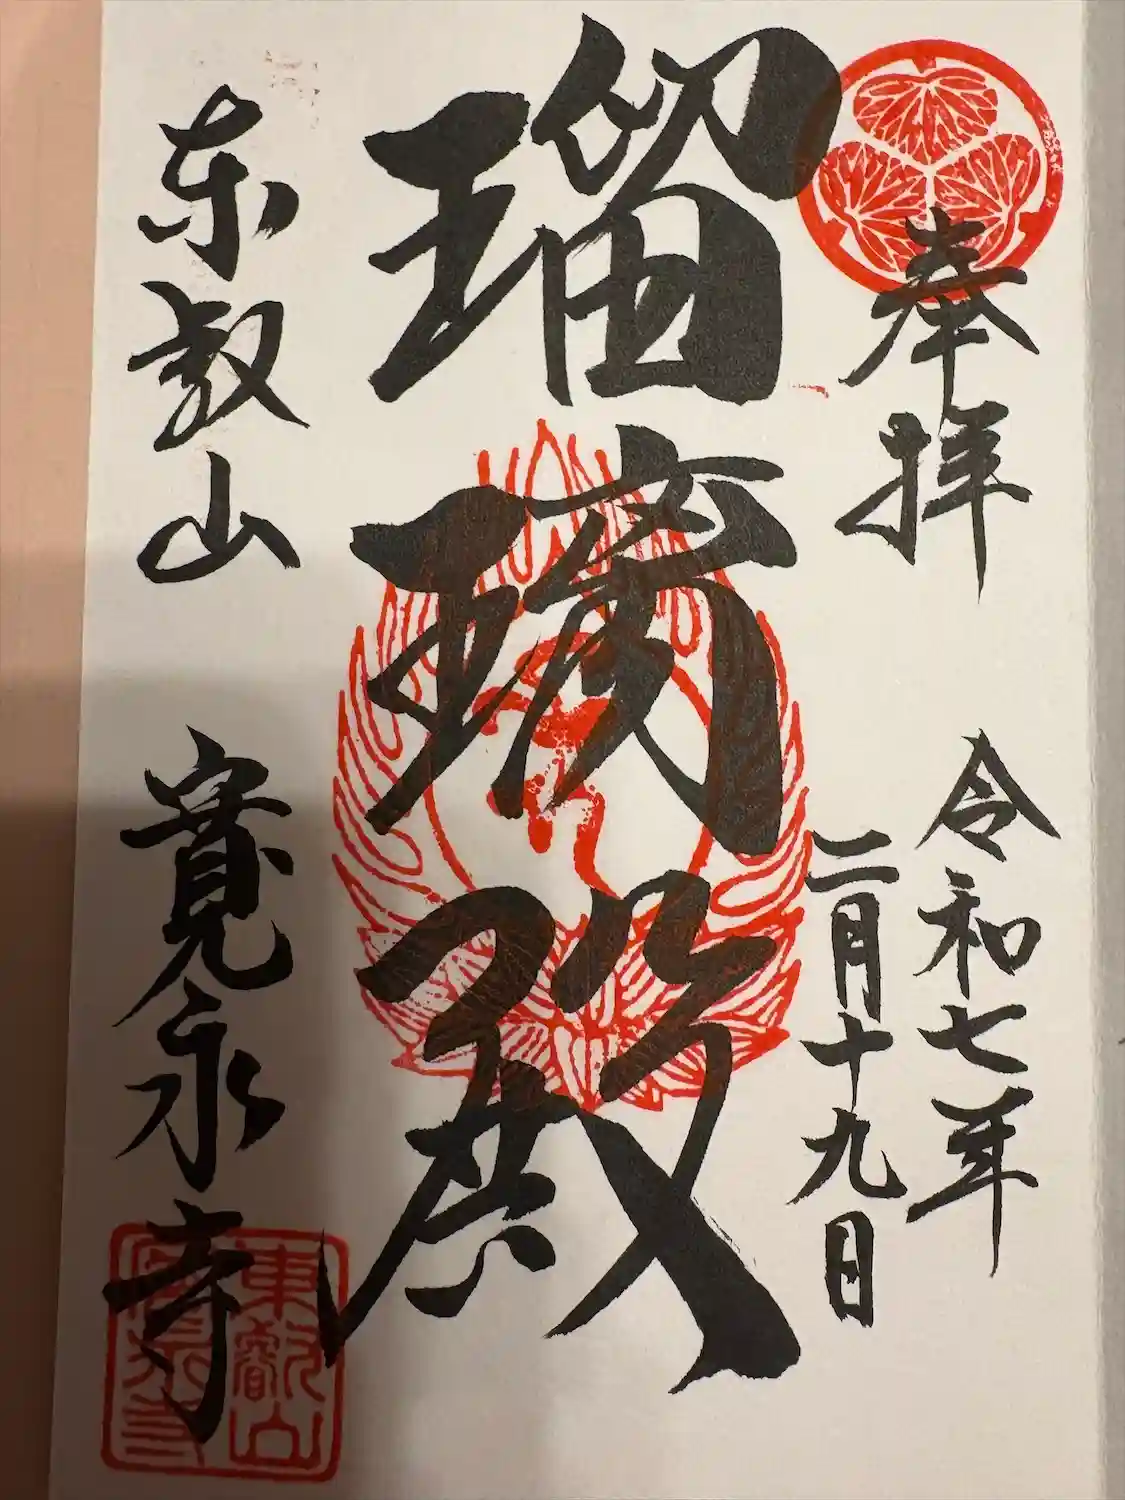 奉拝
令和七年
二月十九日
瑠璃殿
东叡山
寛永寺
東叡山
寛永寺